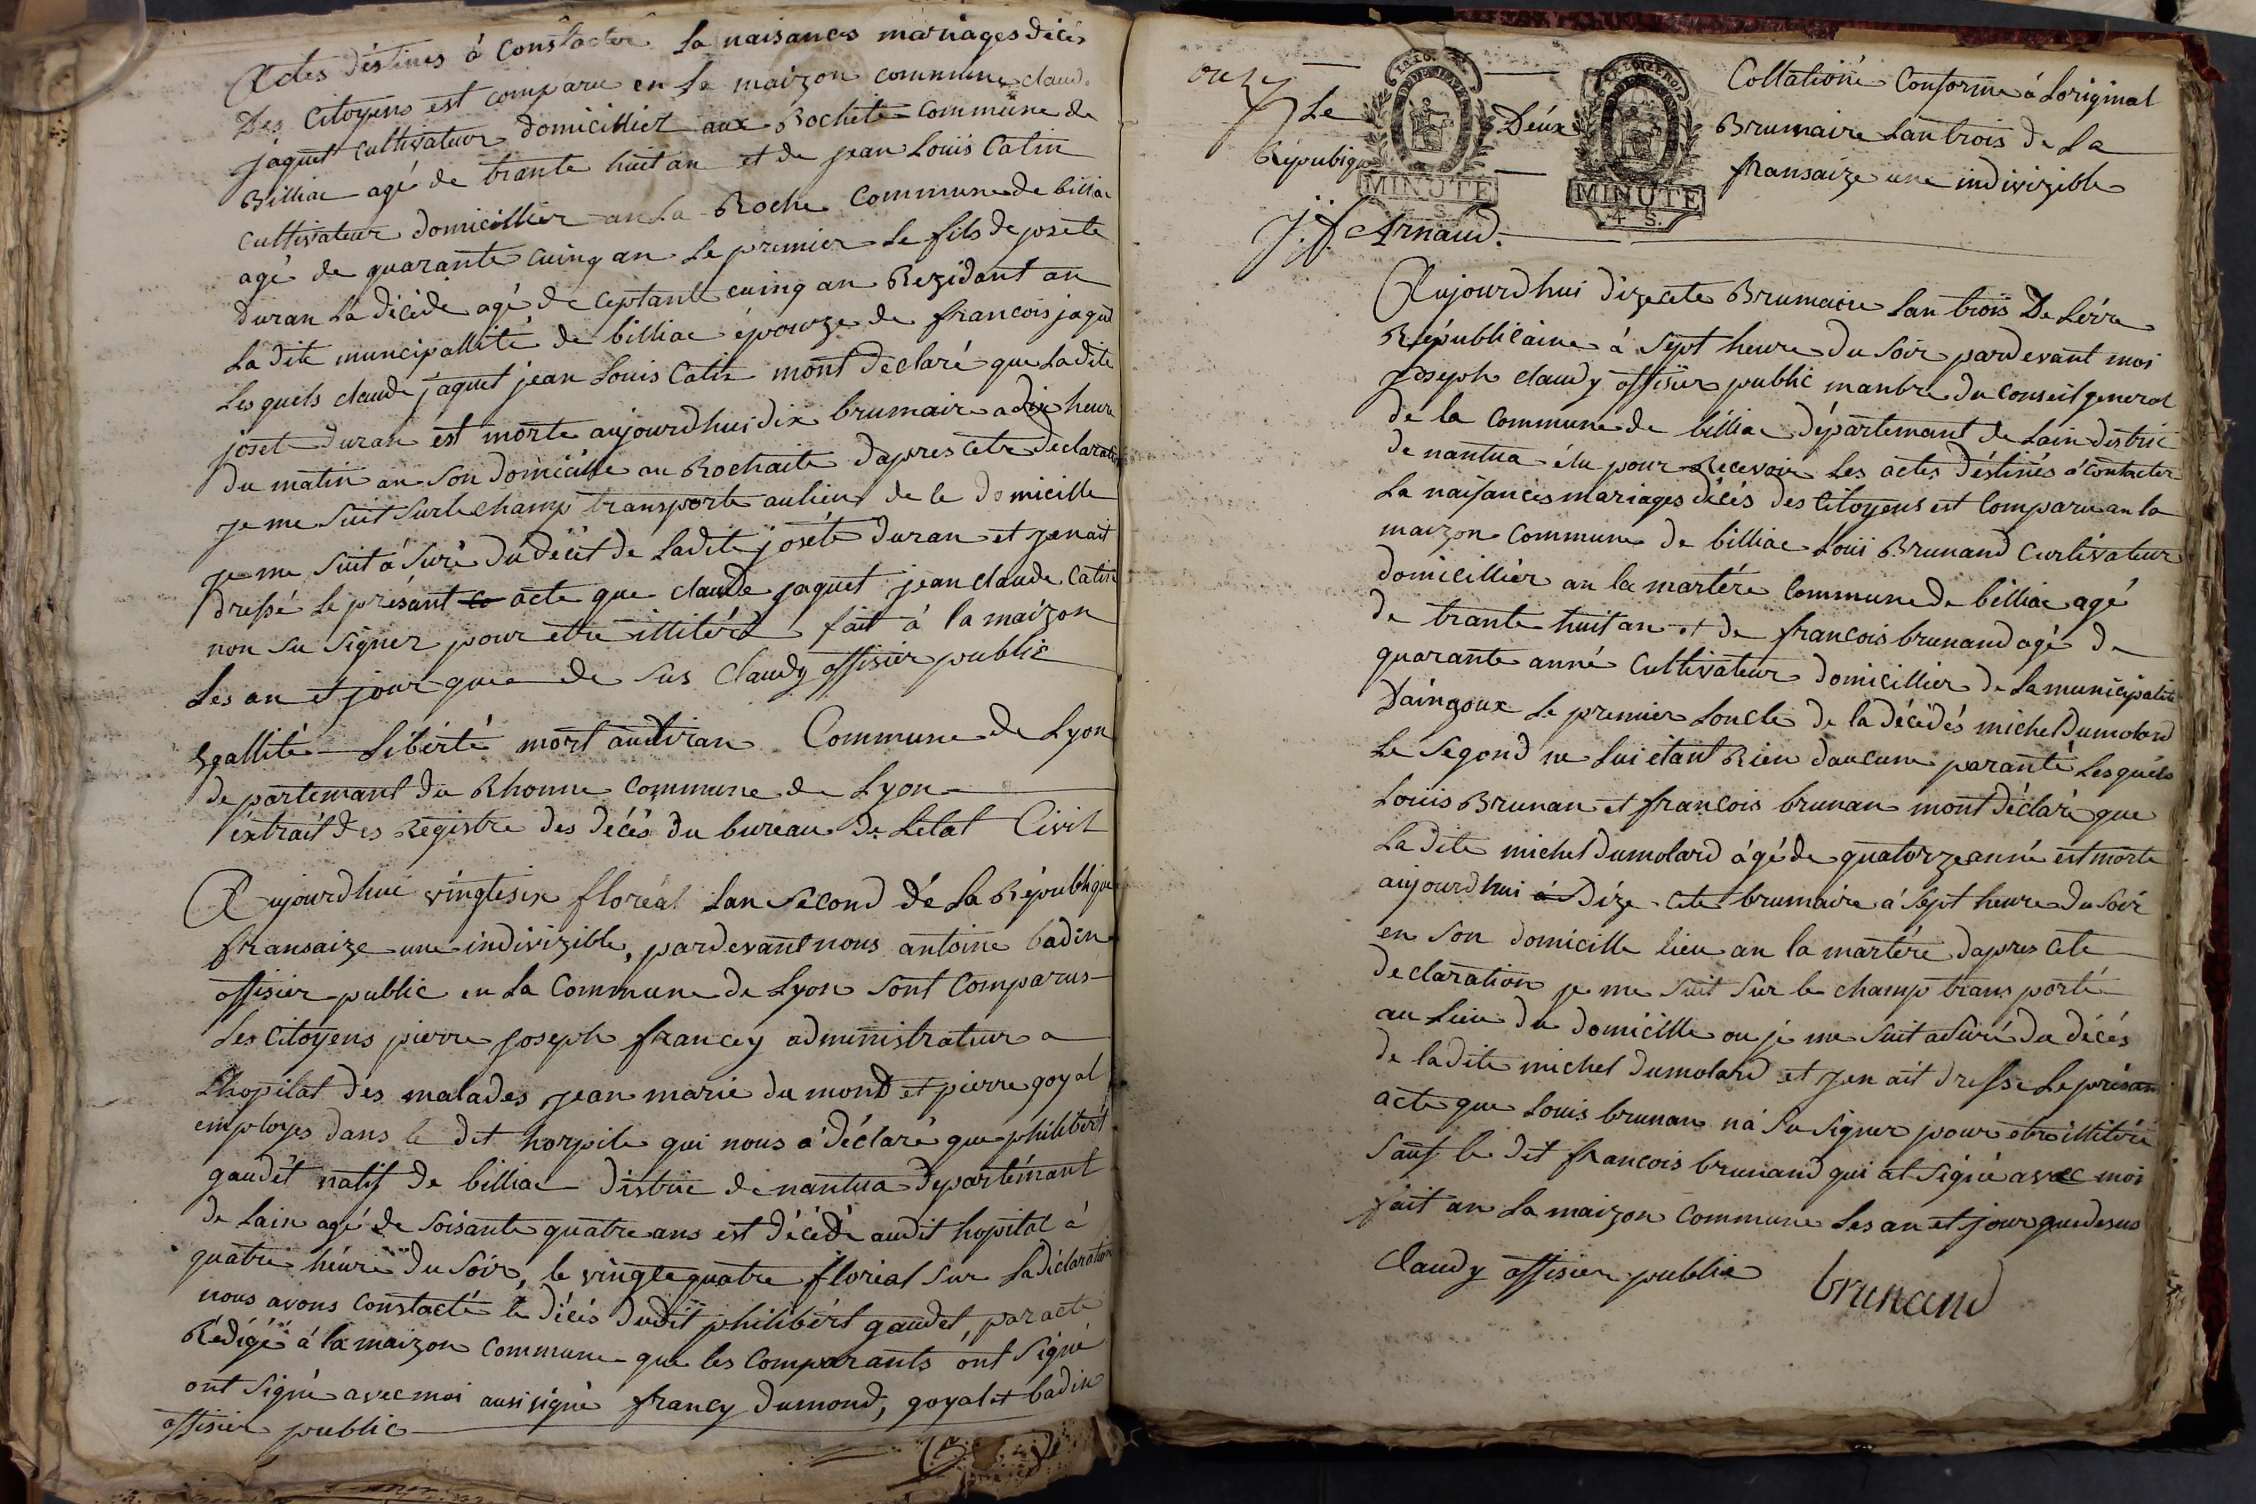 Actes déstinés à Constacter La naisances mariages décés
Des Citoyens est comparu en La maizon commune claud.
jaquet cultivateur domicillier aux Rochite commune de
Billiac agé de trante huit an et de jean Louis Catin
cultivateur domicillier an La Roche Commune de billiac
agé de quarante cuinq an Le premier Le fils de josete
Duran La décéde agé de ceptante cuinq an Rezidant an
La dite muncipallité de billiac épouze de francois jaquet
Les quels claude jaquet jean Louis Catin mont declaré que La dite
joset duran est morte aujourdhui dix brumaire a dix heure
du matin an son domicille au Rochaite dapres cete declaration
je me suit surle champ transporte au lieu de le domicille
je me suit asuré du décét de Ladite joséte duran et jenait
dressé Le présant co acte que claude jaquet jean claude Catin
non su signer pour etre illitéré fait à la maizon
Les an et jour que de sus Claudy offisier public
Egallité Liberté mort au tiran Commune de Lyon
departemant du Rhonne commune de Lyon
éxtrait des Registre des décés du bureau de Letat Civil
Aujourdhui vingtesix floréal Lan second dé La République
fransaize une indivizible, pardevant nous antoine badin
offisier public en La Commune de Lyon sont Comparus
Les Citoyens pierre joseph francey administrateur a
Lhopital des malades jean marie du mond et pierre goyal
employes dans le dit horpile qui nous a déclaré que philibért
gaudét natif de billiac distric de nantua départémant
de Lain agé de soisante quatre ans est décédé audit hopital à
quatre héure du soir, le vingtequatre floréal sur La déclaration
nous avons constacté le décés dudit philibért gaudet, par acte
Rédigé à la maizon Commune que les Comparants ont signé
ont signé avec moi ausi signé francy dumond, goyal et badin
offisier public
onze
Le Deux Collationé Conforme á Loriginal
Brumaire Lan trois de La
Répubiqe fransaize une indivizible
MINUTE
4 S.
MINUTE
4 S.
J. J. Arnaud.
Aujourdhui dizecete Brumaire Lan trois De Lére
Républicaine à sept heure du soir pardevant moi
Joseph claudy offisier public manbre du conseil general
de la Commune de billiac départemant de Lain distric
de nantua élu pour Recevoir Les actes déstinés a contacter
La naissances mariages décés des Citoyens est Comparu an la
maizon Commune de billiac Loui Brunand Curtivateur
domicillier an la martére Commune de billiac agé
de trante huit an et de francois brunand agé de
quarante anné Cultivateur domicillier de La municipalité
Daingoux Le premier Loncle de la décédés michel dumolard
Le segond ne Lui étant Rien daucune paranté Lesquéls
Louis Brunan et francois brunan mont déclaré que
La dite michel Dumolard ágé de quatorze anné est morte
aujourdhui á dize cete brumaire á sept heure du soir
en son domicille lieu an la martére dapres cete
declaration je me suit sur le champ trans porté
au Lieu du domicille ou je me suit asuré du décés
de ladite michel dumolard et jen ait dressé Le présan
acte que Louis brunan na su signer pour etre illitéré
sauf le dit francois brunand qui at signé avec moi
fait an La maizon Commune Les an et jour que desus
Claudy offisier public brunand